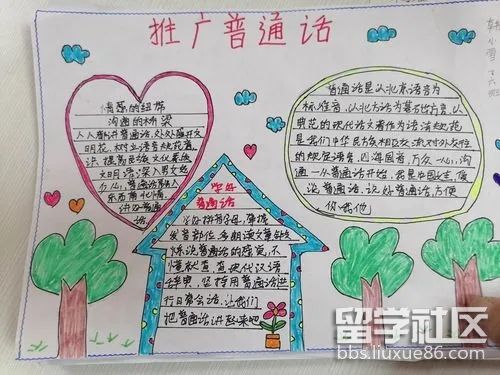 推广普通话
情感的纽带
沟通的桥梁
人人都讲普通话,处处盛开文
明花,树立语言规范意
识,提高民族文化素质
普通话
东西南北情
讲好普通
话
普通话是以北京语音为
标准音,以北方话为基础方言,以
典范的现代语文著作为语法规范
是我们中华民族相互交流对外友好
的规范语言,四海同音,万众一心,沟
通一从普通话开始,我是中国文生,使
说普通话,说好普通话,方便
你我他
学好
普通话
学好拼音字母,掌握
发音部位,多朗读文章多改
练说普通话的感觉,不
懂就查查现代汉语
字典,坚持用普通话进
行日常会话,让我们
把普通话讲起来吧
留学社区
bbs.liuxue86.com